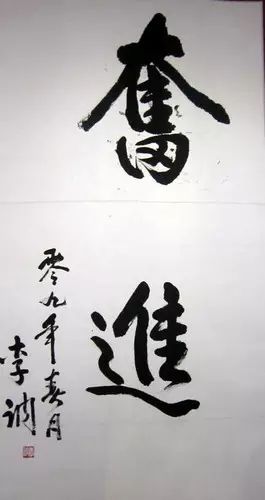 奮進
零九年春月
李润